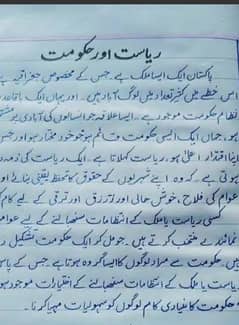 ریاست اور حکومت
پاکستان ایک ایسا ملک ہے جس کے مخصوص جغرافیہ
اس خطے میں کثیر تعداد میں لوگ آباد ہیں۔ اور یہاں ایک باقاعدہ
نظام حکومت موجود ہے۔ ایسا علاقہ جو انسانوں کی آبادی پر مشتمل
ہو، جہاں ایک ایسی حکومت قائم ہو جو خود مختار ہو اور جس
اپنا اقتدار اعلیٰ ہو، ریاست کہلاتا ہے۔ ایک ریاست کی ذمہ
ہوتی ہے کہ وہ اپنے شہریوں کے حقوق کا تحفظ یقینی بنائے اور
عوام کی فلاح، خوش حالی اور ترقی کے لیے کام
کسی ریاست یا ملک کے انتظامات سنبھالنے کے لیے عوام
نمائندے منتخب کرتے ہیں۔ جو مل کر ایک حکومت تشکیل
ہیں۔ حکومت سے مراد لوگوں کا ایسا گروہ ہوتا ہے جس کے پاس
ریاست یا ملک کے انتظامات سنبھالنے کے اختیارات موجود ہوں
حکومت کا بنیادی کام لوگوں کو سہولیات مہیا کرنا۔